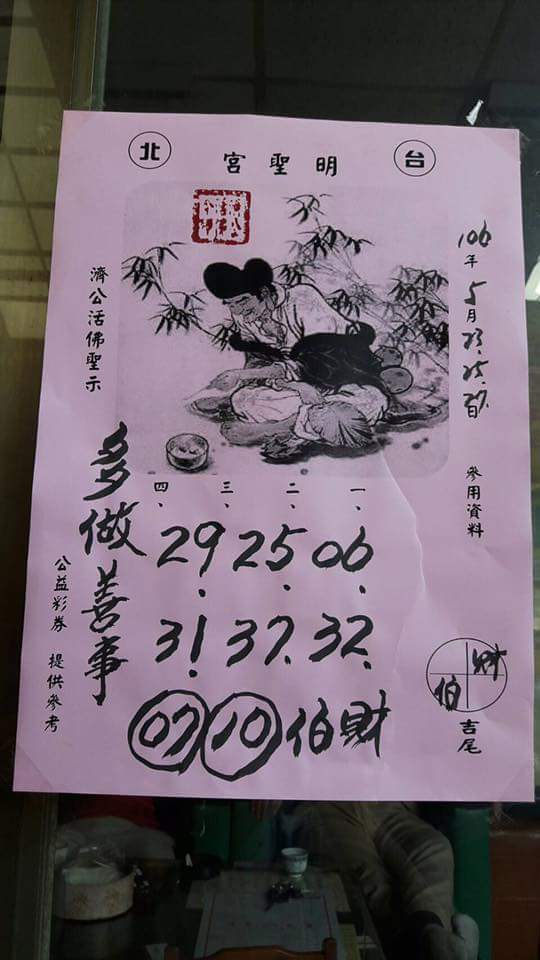 台北
明聖宮
106年5月23.25.27.日
參用資料
濟公活佛聖示
一、二、三、四、
06. 25. 29.
32. 37. 31.
財伯 10 07
多做善事
財伯
吉尾
公益彩券 提供參考